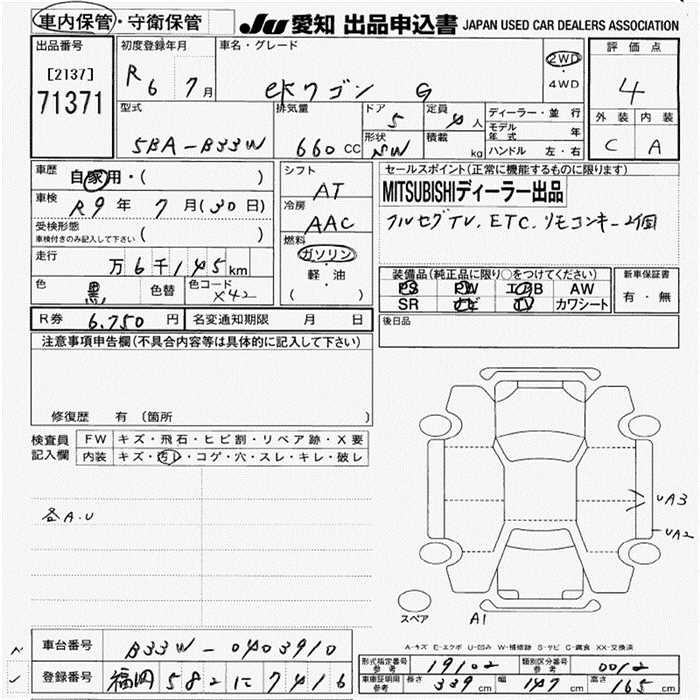 車内保管・守衛保管 JU 愛知 出品申込書 JAPAN USED CAR DEALERS ASSOCIATION
出品番号 [2137] 71371
初度登録年月 R 6 7月
車名・グレード eKワゴン G
2WD・4WD
評価点 4
外装 内装
C A
型式 5BA-B33W
排気量 660 CC
ドア 5
形状 SW
定員 4 人
積載 kg
ディーラー・並行
モデル年式 年
ハンドル 左・右
車歴 自家用・( )
車検 R9年 7月(30日)
受検形態 車検付きのみ記入して下さい ( )
走行 万6千145km
色 黒 色替 色コード X42
シフト AT
冷房 AAC
燃料 ガソリン・軽油 ( )
セールスポイント(正常に機能するものに限ります)
MITSUBISHIディーラー出品
フルセグTV. ETC. リモコンキー2個
装備品(純正品に限り○をつけてください)
PS PW エアB AW
SR ナビ TV カワシート
新車保証書 有・無
R券 6.750円 名変通知期限 月 日
後日品
注意事項申告欄(不具合内容等は具体的に記入して下さい)
修復歴 有 (箇所 )
検査員記入欄
FW キズ・飛石・ヒビ割・リペア跡・X要
内装 キズ・汚レ・コゲ・穴・スレ・キレ・破レ
各A.U
UA3
UA2
スペア
A1
A-キズ E-エクボ U-凹み W-補修跡 S-サビ C-腐食 XX-交換済
車台番号 B33W-0403910
登録番号 福岡 582 に 7416
型式指定番号 参考 19102 類別区分番号 参考 0012
車庫証明用 参考 長さ 339cm 幅 147cm 高さ 165cm